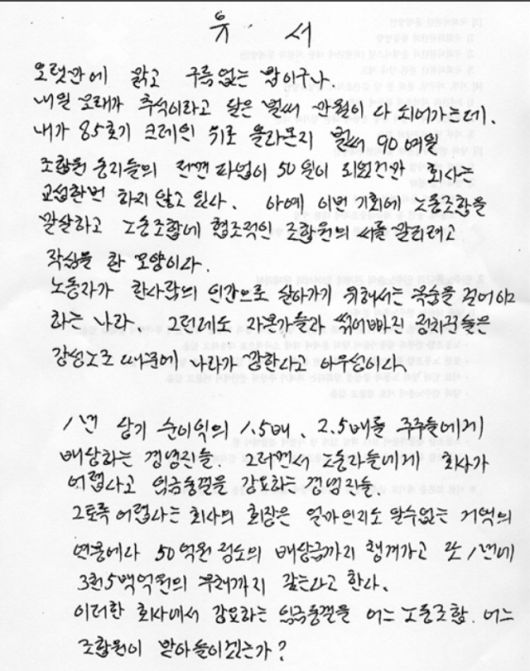 유 서
오랜만에 맑고 구름없는 밤이구나.
내일 모래가 추석이라고 달은 벌써 만월이 다 되어가는데.
내가 85호기 크레인 위로 올라온지 벌써 90여일
조합원 동지들의 전면파업이 50일이 되었건만 회사는
교섭한번 하지 않고 있다. 아예 이번 기회에 노동조합을
말살하고 노동조합에 협조적인 조합원의 씨를 말리려고
작심을 한 모양이다.
노동자가 한사람의 인간으로 살아가기 위해서는 목숨을 걸어야
하는 나라. 그런데도 자본가들과 썩어빠진 정치꾼들은
강성노조 때문에 나라가 망한다고 아우성이다.
1년 당기 순이익의 1.5배, 2.5배를 주주들에게
배당하는 경영진들. 그러면서 노동자들에게 회사가
어렵다고 임금동결을 강요하는 경영진들.
그토록 어렵다는 회사의 회장은 얼마인지도 알수없는 거액의
연봉에다 50억원 정도의 배당금까지 챙겨가고 또 1년에
3천5백억원의 부채까지 갚는다고 한다.
이러한 회사에서 강요하는 임금동결을 어느 노동조합, 어느
조합원이 받아들이겠는가?